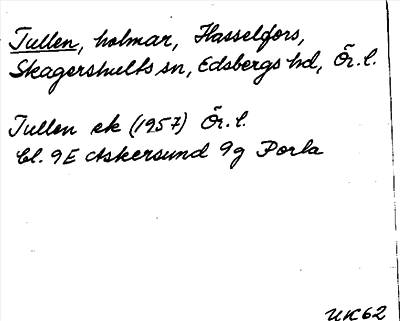 Tullen, holmar, Hasselfors,
Skagershults sn, Edsbergs hd, Ör. l.
Tullen ek (1957) Ör. l.
bl. 9E Askersund 9g Porla
UK62